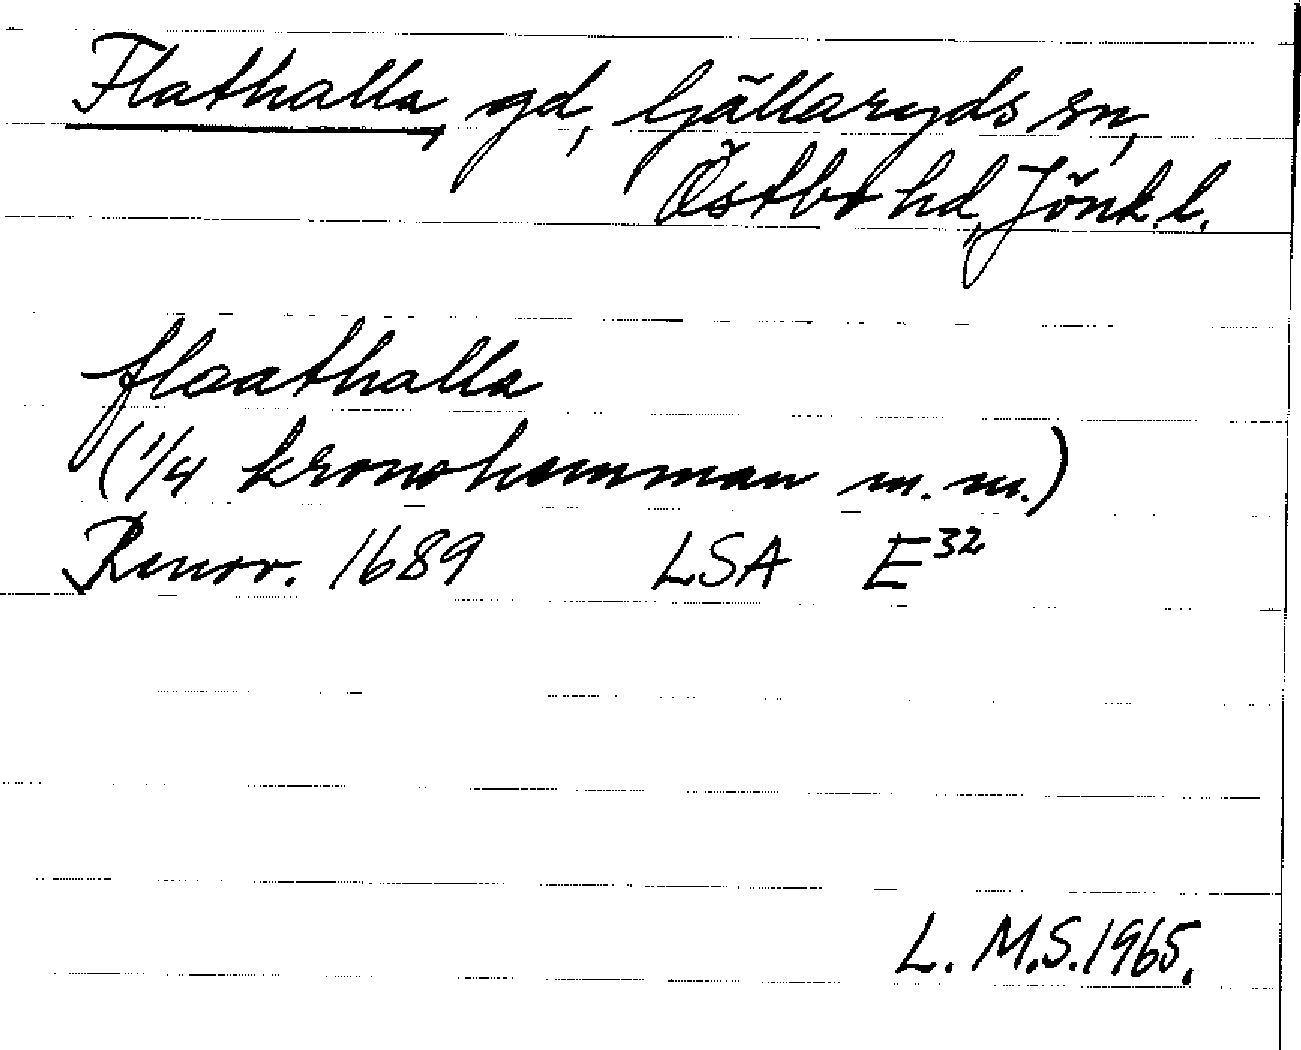 Flathalla, gd, Gällaryds sn,
Östbo hd, Jönk. l.
flaathalla
(1/4 kronohemman m. m.)
Renov. 1689 LSA E32
L. M.S. 1965.